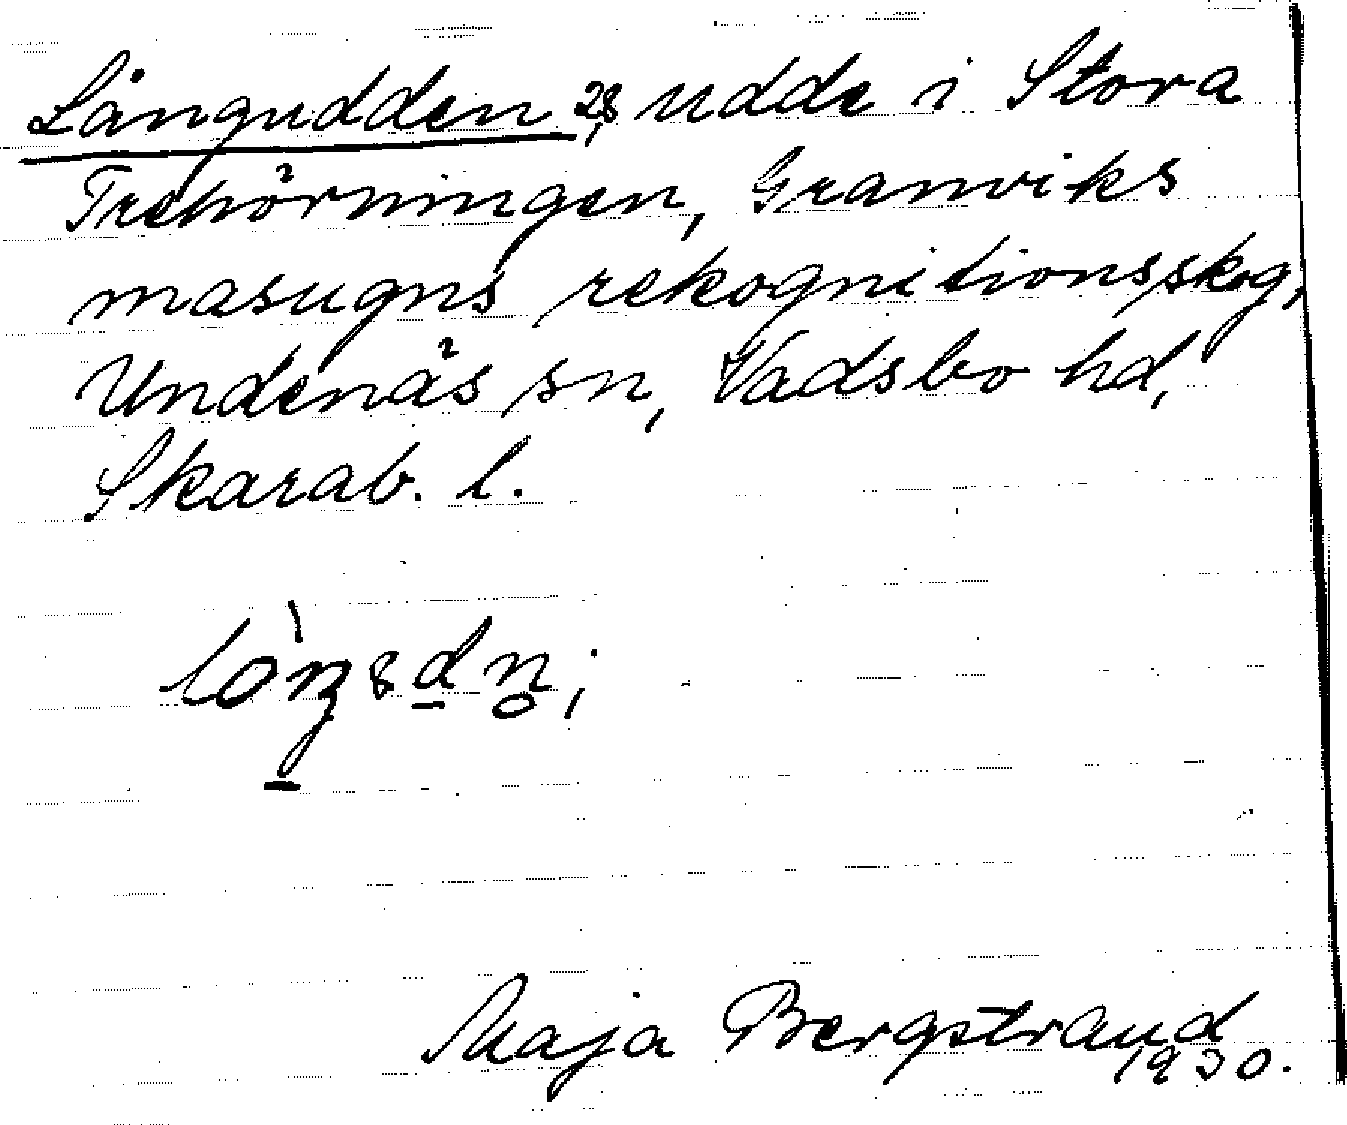 Långudden 28, udde i Stora
Trehörningen, Granviks
masugns rekognitionsskog,
Undenäs sn, Vadsbo hd,
Skarab. l.
Maja Bergstrand
1930.